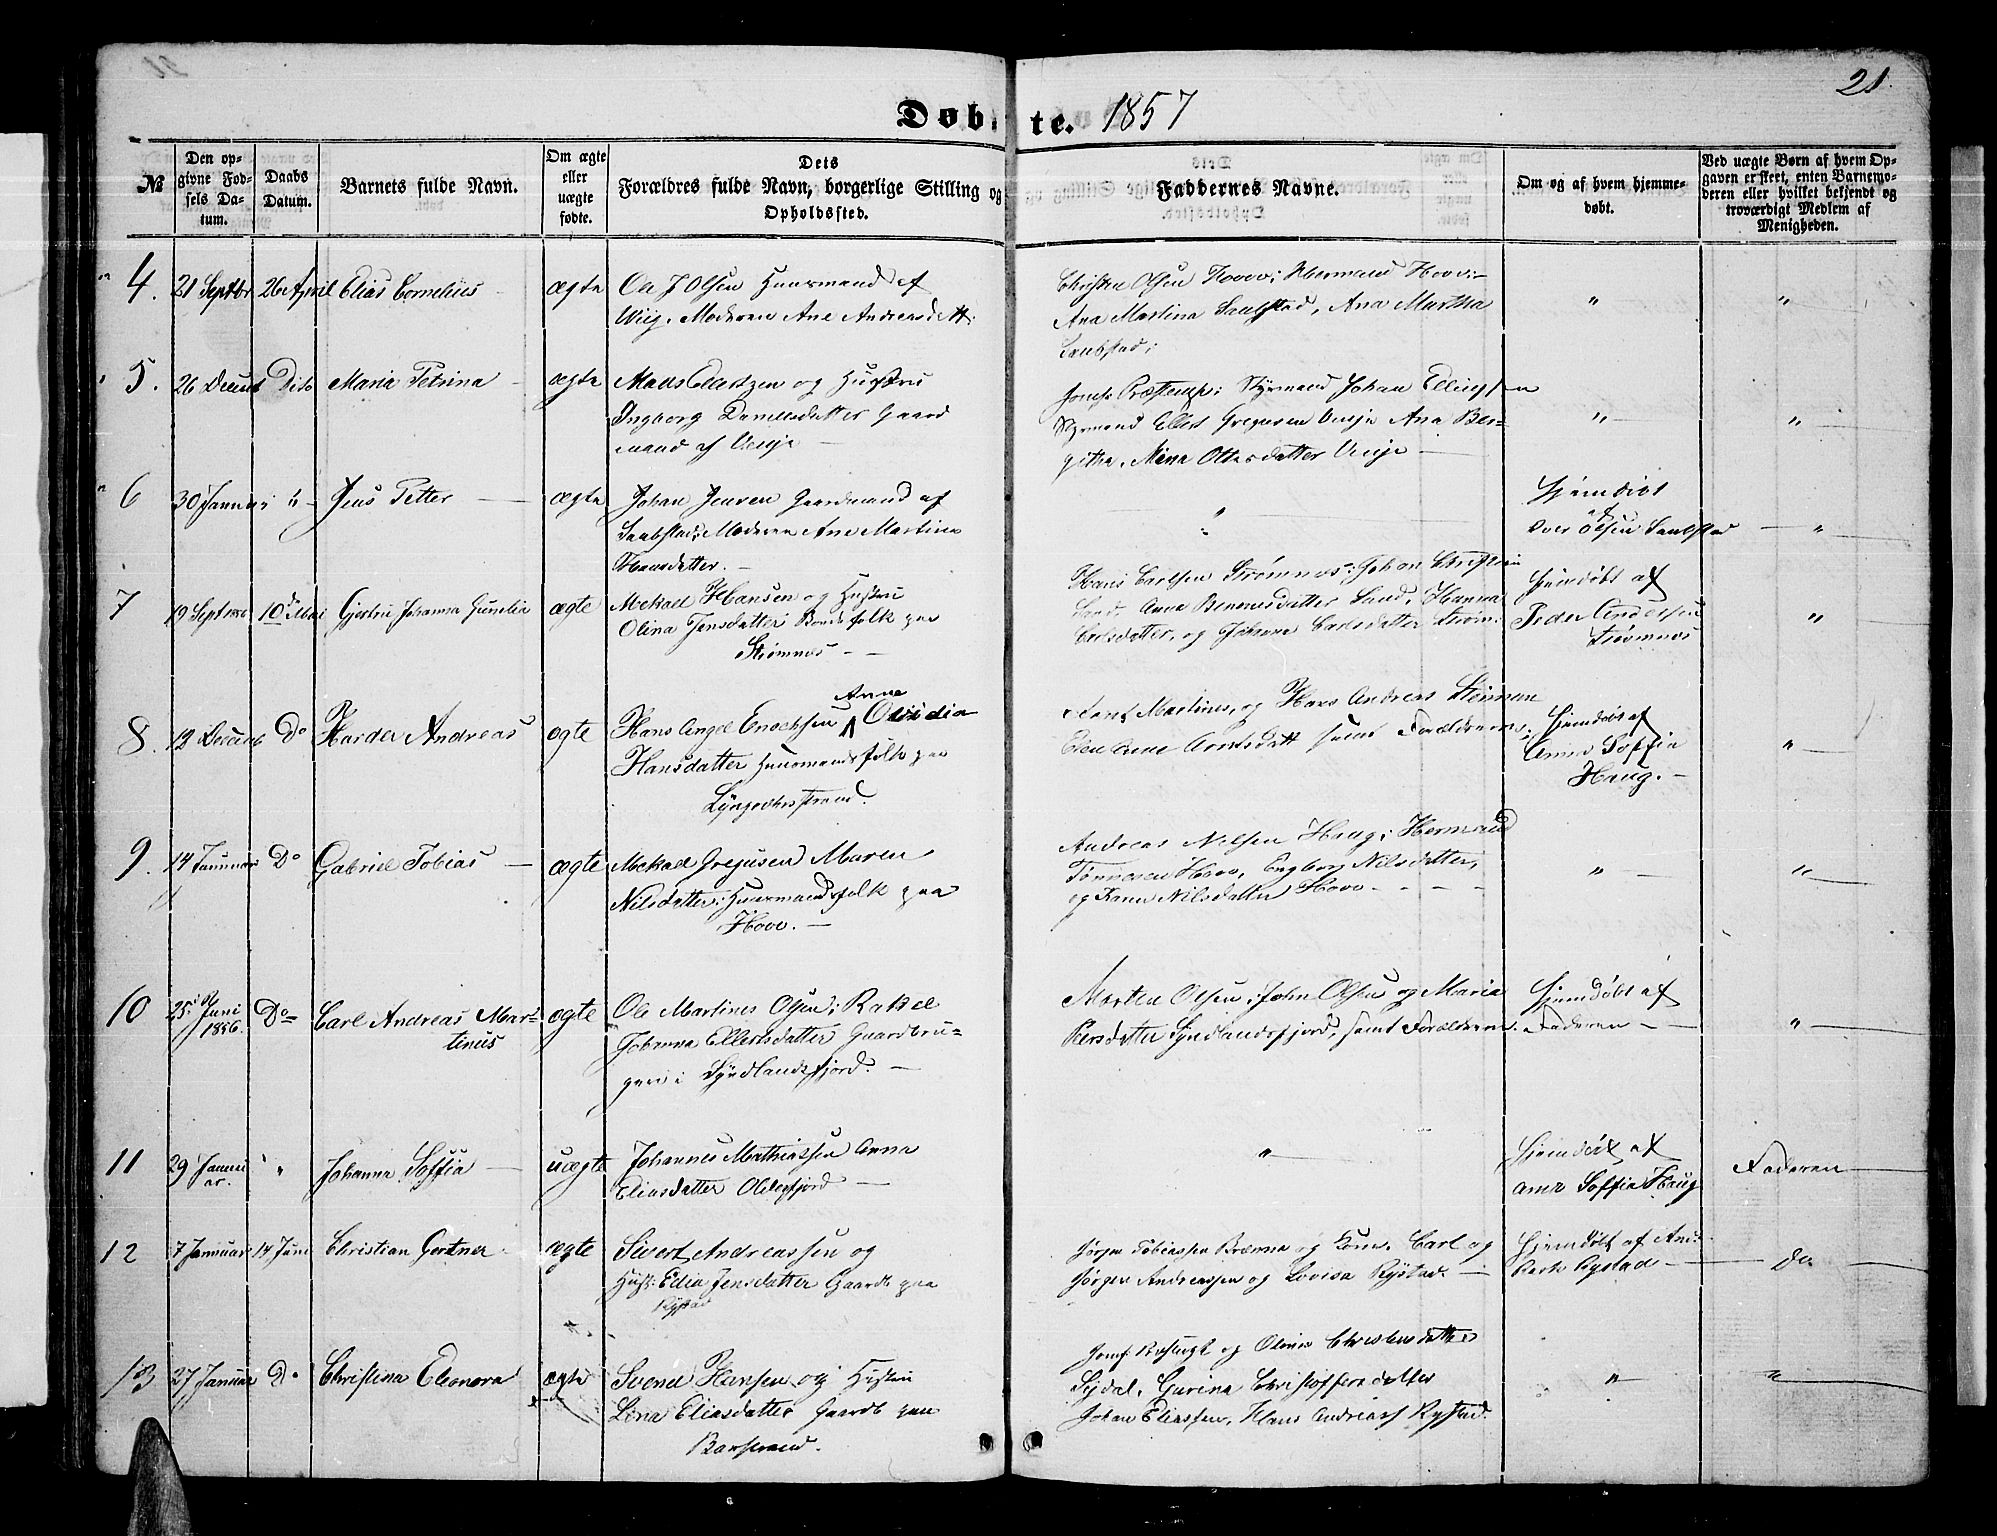 21.
Døbte. 1857
№
Den opgivne Fødsels Datum.
Daabs Datum.
Barnets fulde Navn.
Om ægte eller uægte fødte.
Dets Forældres fulde Navn, borgerlige Stilling og Opholdssted.
Faddernes Navne.
Om og af hvem hjemmedøbt.
Ved uægte Børn af hvem Opgaven er skeet, enten Barnemoderen eller hvilket bekjendt og troværdigt Medlem af Menigheden.
4. 21 Septbr 26 April Elias Cornelius ægte Ole J Olsen Huusmand af
Wiig. Moderen Ane Andreasdatt.
Christen Olsen Hovov; Hermand Hoov:
Ana Martina Saubstad, Ana Martha
Saubstad;
" "
5. 26 Decemb Dito Maria Petrina ægte Mads Ellertzen og Hustru
Ingborg Danielsdatter Gaard
mand af Venje
Styrmand Johan Ellingsen
Styrmand Ellert Gregusen Venje Ana Ber-
githa, Mina Ottesdatter Venje
" "
6 30 Januar " Jens Petter ægte Johan Jensen Gaardmand af
Saubstad; Moderen Ane Martine
Hansdatter.
"
Hjemdøbt
af
Olsen Saubstad "
7 19 Septbr 10d Mai Gjertru Johanna Gunelia ægte Mekael Hansen og Hustru
Olina Jensdatter Bondefolk paa
Strømnes
Hans Carlsen Strømnes; Johan Christian
Sand, Anne Bennesdatter Sand, Hanna
Carlsdatter, og Johanna Carlsdatter Strøm:
Hjemdøbt af
Peder Andersen
Strømnes
"
8. 12 Decemb Do Harder Andreas ægte Hans Angel Enochsen Anne Ovidia
Hansdatter Huusmandsfolk paa
Lyngedverstrand.
Martines, og Hans Andreas
samt Forældrene;
Hjemdøbt af
Anne Soffia
Haug.
"
9. 14 Januar Do Gabriel Tobias ægte Mekael Gregusen Maren
Nilsdatter; Huusmandsfolk paa
Hovo.
Andreas Nilsen Haug; Hermand
Tønnesen Hovo, Engborg Nilsdatter,
og Karen Nilsdatter Hovo
" "
10 25 Juni
1856. Do Carl Andreas Mar-
tinus ægte Ole Martines Olsen; Rakel
Johanna Ellertsdatter Gaardbru-
gere i Syndlandsfjord.
Morten Olsen; John Olsen og Maria
Persdatter Syndlandsfjord, samt Forældrene.
Hjemdøbt af
Faderen
"
11 29 Janu
ar. " Johanna Soffia uægte Johannes Mathiassen Anna
Eliasdatter Olderfjord
"
Hjemdøbt af
Anne Soffia Haug
Faderen
12 7 Januar 14 Juni Christian Gertner ægte Sivert Andreassen og
Hust: Edia Jensdatter Gaardb paa
Rystad
Jørgen Tobiassen Brænna og Kone. Carl og
Jørgen Andreassen og Lovisa Rystad.
Hjemdøbt af And:
Rystad
Do
13 27 Januar Do Christina Eleonora ægte Svend Hansen og Hustru
Lina Eliasdatter Gaardb paa
Barstrand.
og Olivia Christensdatter
Sydal. Gurina Christoffersdatter
Johan Eliassen, Hans Andreas Rystad.
" "